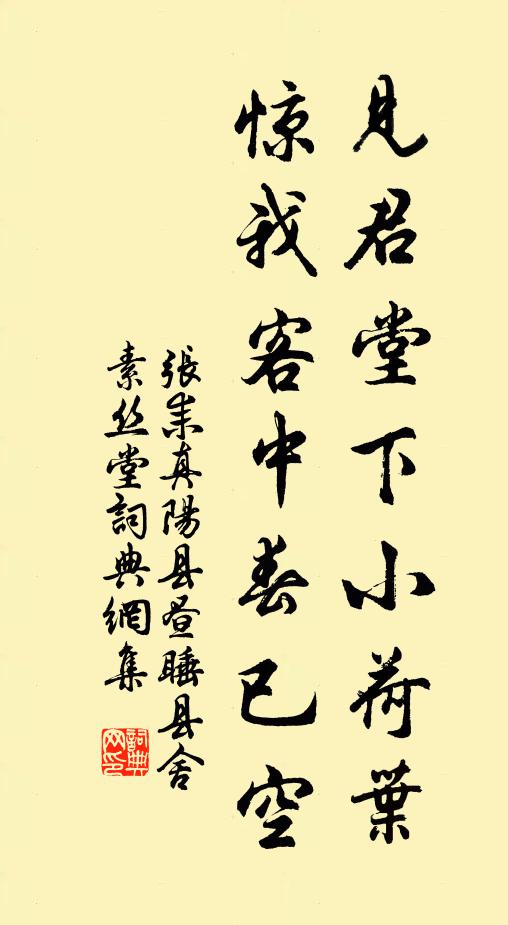 見君堂下小荷葉
惊我客中春已空
張耒真陽县昼睡县舍
素丝堂詞典網集
詞典网印